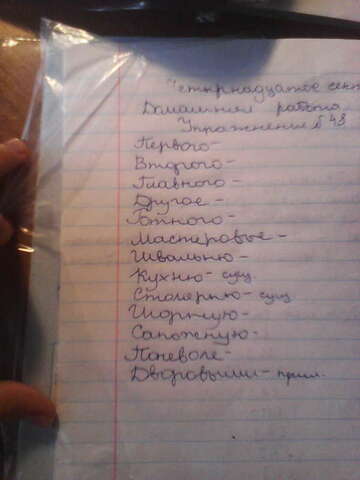 Четырнадцатое сент
Домашняя работа
Упражнение № 48
Первого-
Второго-
Главного-
Другое-
Южного-
Мастеровые-
Швальню-
Кухню- сущ.
Столярню- сущ
Шорную-
Сапожную-
Поневоле-
Дворовыми- прил.